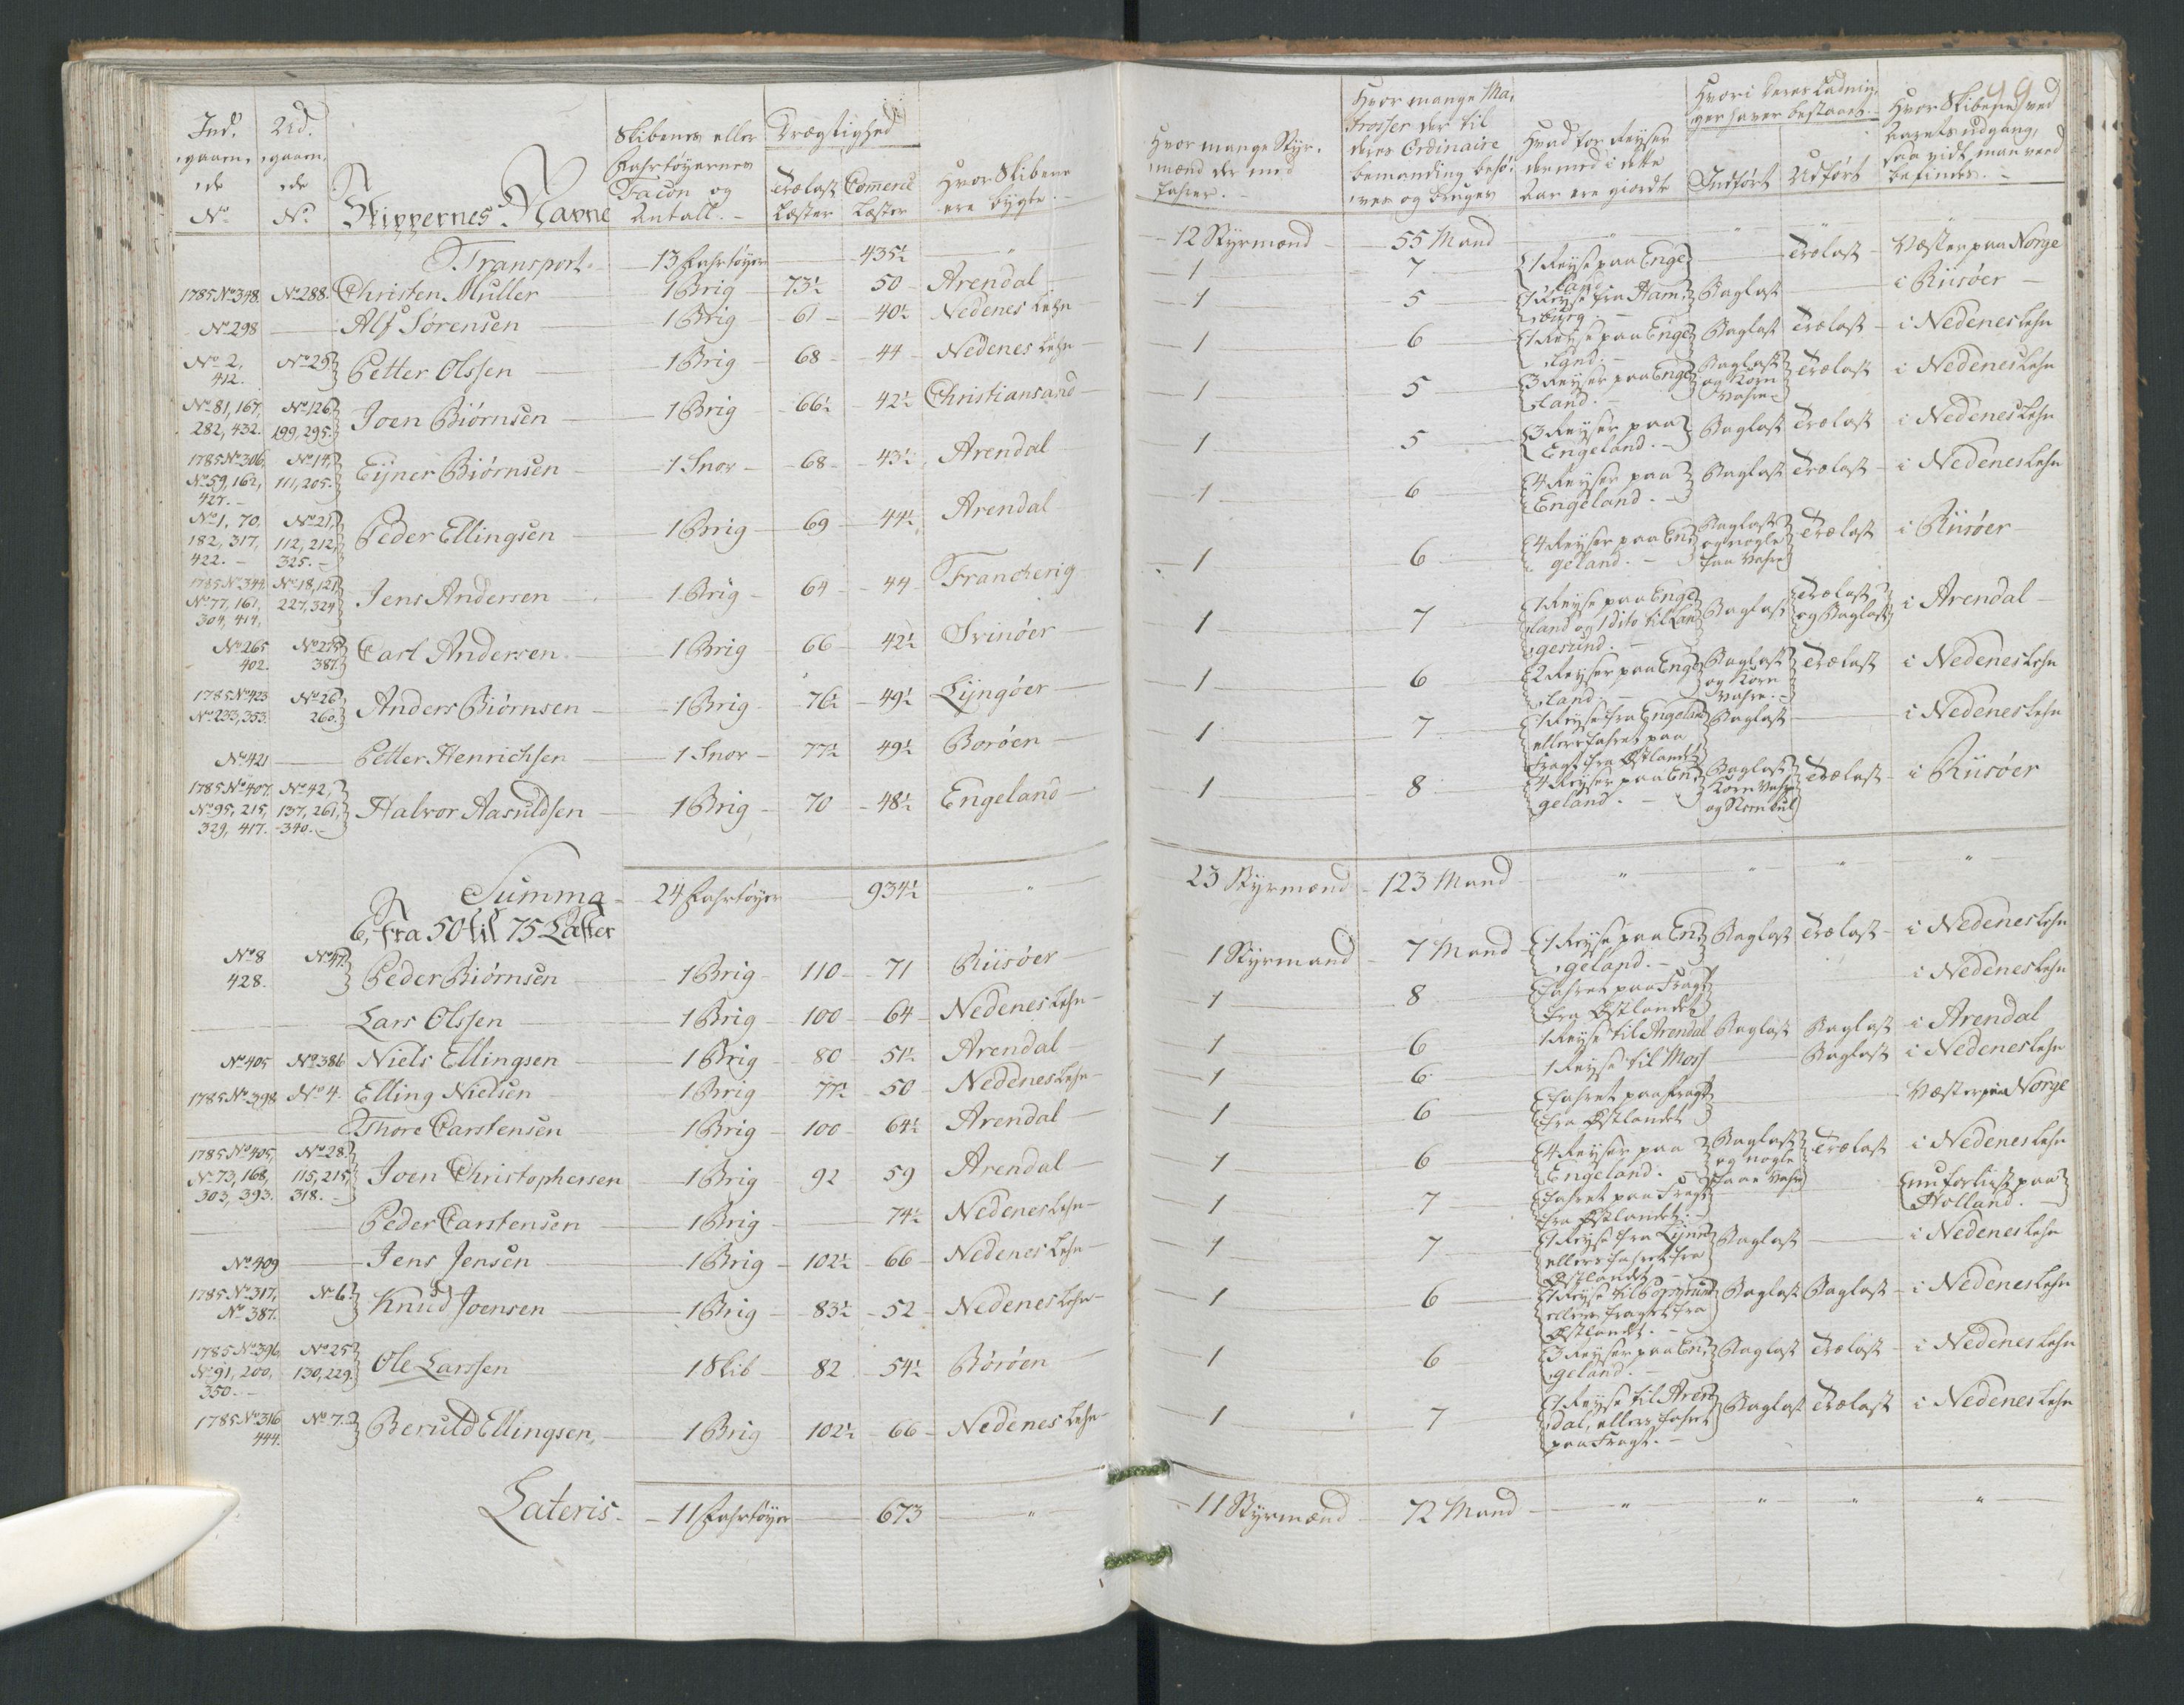 Ind„ Ud„ Skibenes eller Drægtighed
gaaen„ gaaen„ Fahrtøyernes
de de Facon og Trælast Comerce Hvor Skibene
No No Skippernes Navne Antall. Læster Læster ere bygte.
Transport. 13 Fahrtøyer 435½ "
1785 No 348. No 288. Christen Muller 1 Brig 73½ 50 Arendal
No 298 Alf Sørensen 1 Brig 61 40½ Nedenes Lehn
No 2, 412. No 25 Petter Olssen 1 Brig 68 44 Nedenes Lehn
No 81, 167, 282, 432. No 126 199, 295. Joen Biørnsen 1 Brig 66½ 42½ Christiansand
1785 No 306, No 59, 162, 427. No 14, 111, 205. Eyner Biørnsen 1 Snor 68 43½ Arendal
No 1, 70, 182, 317, 422. No 21, 112, 212, 325. Peder Ellingsen 1 Brig 69 44½ Arendal
1785 No 344. No 77, 161, 304, 414, No 18, 121, 227, 324 Jens Andersen 1 Brig 64 44 Francherig
No 265 402. No 275 387. Carl Andersen 1 Brig 66 42½ Svinöer
1785 No 423 No 233, 353. No 26 260. Anders Biørnsen 1 Brig 76½ 49½ Lyngöer
No 421 Petter Henrichsen 1 Snor 77½ 49½ Boröen
1785 No 407, No 95, 215, 329, 417. No 42, 137, 261, 340. Halvor Aasuldsen 1 Brig 70 48½ Engeland
Summa 24 Fahrtøyer 934½ "
6, fra 50 til 75 Læster
No 8 428. No 47 Peder Biørnsen 1 Brig 110 71 Riisöer
Lars Olssen 1 Brig 100 64 Nedenes Lehn
No 405 No 386 Niels Ellingsen 1 Brig 80 51½ Arendal
1785 No 398 No 4. Elling Nielsen 1 Brig 77½ 50 Nedenes Lehn
Thore Carstensen 1 Brig 100 64½ Arendal
1785 No 405, No 73, 168, 303, 393. No 28. 115, 215, 318. Joen Christophersen 1 Brig 92 59 Arendal
Peder Carstensen 1 Brig 74½ Nedenes Lehn
No 409 Jens Jensen 1 Brig 102½ 66 Nedenes Lehn
1785 No 317, No 387. No 6. Knud Joensen 1 Brig 83½ 52 Nedenes Lehn
1785 No 396, No 91, 200, 350. No 25 130, 229. Ole Larssen 1 Skib 82 54½ Böröen
1785 No 316 444. No 7. Beruld Ellingsen 1 Brig 102½ 66 Nedenes Lehn
Lateris 11 Fahrtøyer 673 "
99
Hvor mange Ma„ Hvori deres Ladnin„ Hvor Skibene ved
trosser der til ger haver bestaaet Aarets udgang,
Hvor mange Styr„ deres Ordinaire Hvad for Reyser saa vidt man veed
mænd der med bemanding behø„ dermed i dette befindes.
farer. ves og bruges Aar ere giordte Indført Udført
12 Styrmænd 55 Mand " " " "
1 7 1 Reyse paa Enge„ land Trælast Vester paa Norge
1 5 1 Reyse fra Ham„ burg. Baglast i Riisöer
1 6 1 Reyse paa Enge„ land. Baglast Trælast i Nedenes Lehn
1 5 3 Reyser paa Enge„ land. Baglast og Korn Vahre Trælast i Nedenes Lehn
1 5 3 Reyser paa Engeland. Baglast Trælast i Nedenes Lehn
1 6 4 Reyser paa Engeland. Baglast Trælast i Nedenes Lehn
1 6 4 Reyser paa En„ geland. Baglast og nogle Vahre Trælast i Riisöer
1 7 1 Reyse paa Enge„ land og 1 dito til Lan„ gesund. Baglast Trælast og Baglast i Arendal
1 6 2 Reyser paa Enge„ land. Baglast og Korn Vahre. Trælast i Nedenes Lehn
1 7 1 Reyse fra Engeland ellers fahret paa Fragt fra Østlandet Baglast i Nedenes Lehn
1 8 4 Reyser paa En„ geland. Baglast Korn Vahre og Trælast i Riisöer
23 Styrmænd 123 Mand " " " "
1 Styrmand 7 Mand 1 Reyse paa En„ geland. Baglast Trælast i Nedenes Lehn
1 8 fahret paa Fragt fra Østlandet i Nedenes Lehn
1 6 1 Reyse til Arendal Baglast Baglast i Arendal
1 6 1 Reyse til Moss Baglast i Nedenes Lehn
1 6 fahret paa Fragt fra Østlandet Vester paa Norge
1 6 4 Reyser paa Engeland. Baglast og nogle Vahre Trælast i Nedenes Lehn
1 7 fahret paa Fragt fra Østlandet. nu forliist paa Holland.
1 7 1 Reyse fra ellers fahret fra Østlandet Baglast i Nedenes Lehn
1 6 1 Reyse til ellers fragtet fra Østlandet. Baglast Baglast i Nedenes Lehn
1 6 3 Reyser paa En„ geland. Baglast Trælast i Nedenes Lehn
1 7 1 Reyse til Aren„ dal, ellers fahret paa Fragt. Baglast Trælast i Nedenes Lehn
11 Styrmænd 72 Mand " " " "